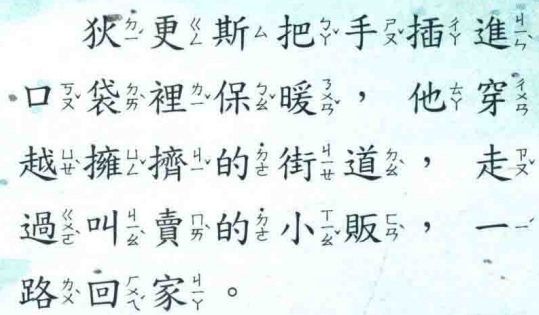 狄更斯把手插進
口袋裡保暖，他穿
越擁擠的街道，走
過叫賣的小販，一
路回家。